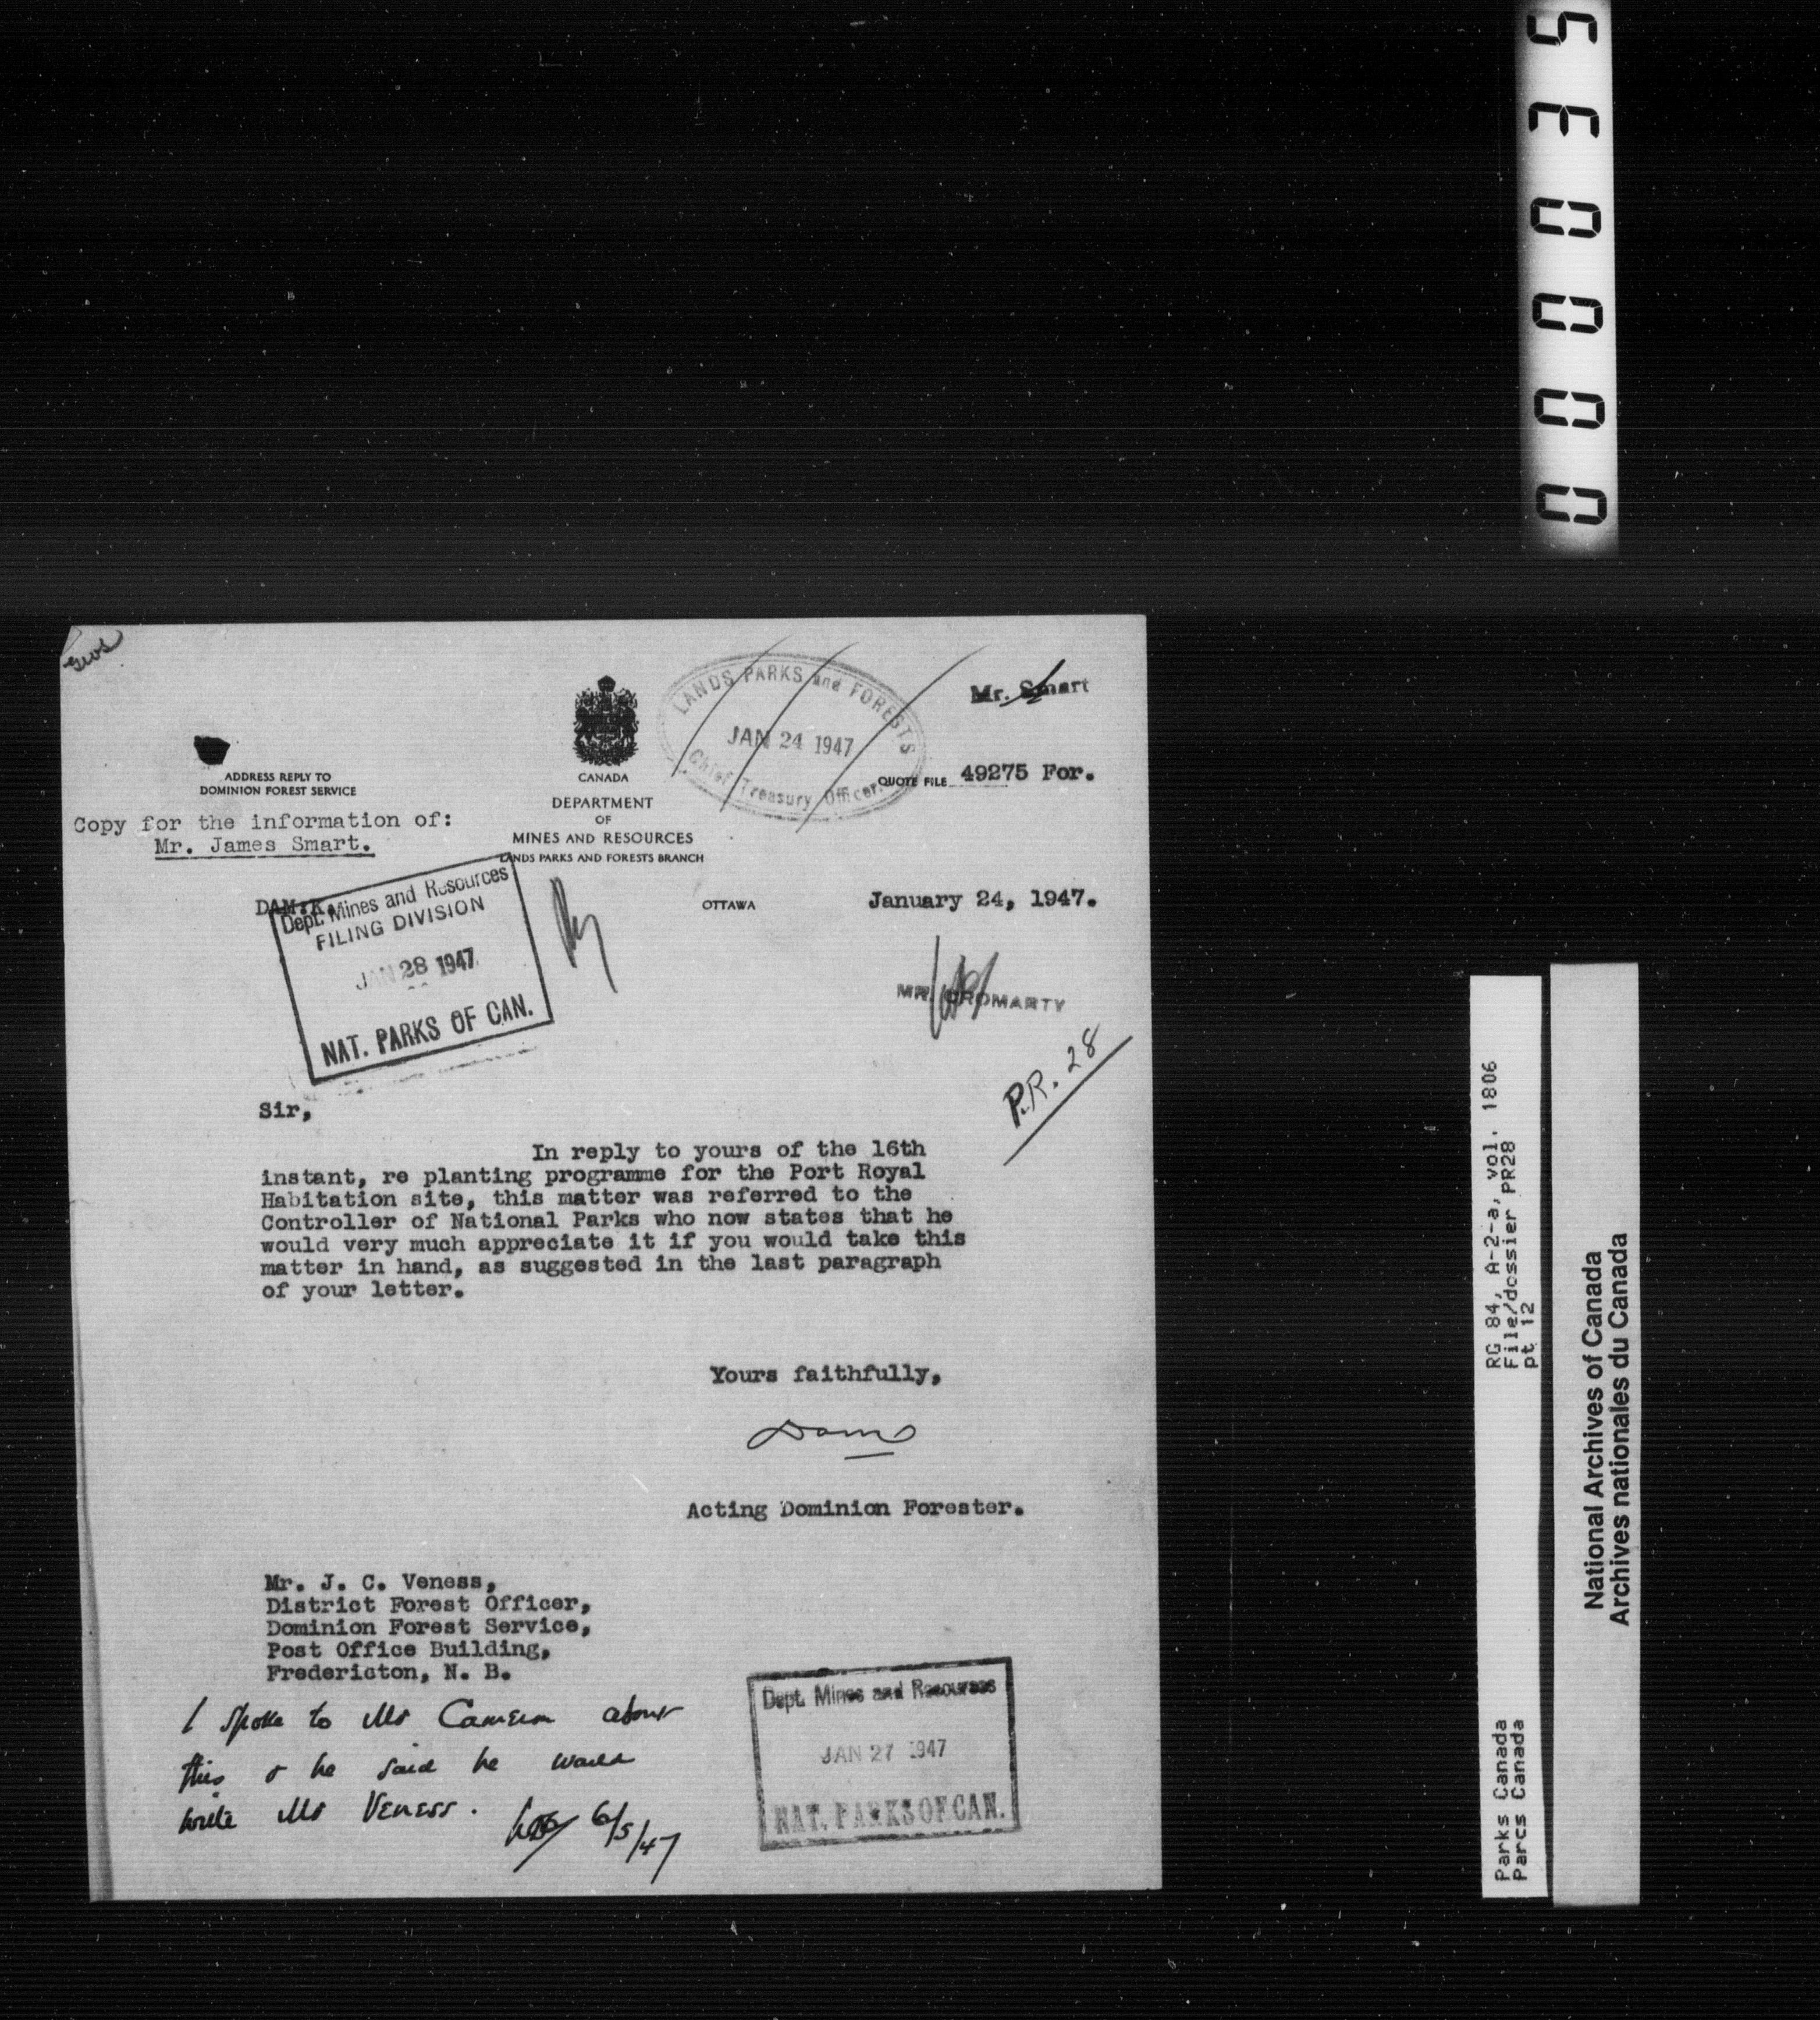 000035
LANDS PARKS and FORESTS
JAN 24 1947
Chief Treasury Officer
Mr. Smart
CANADA
DEPARTMENT
OF
MINES AND RESOURCES
LANDS PARKS AND FORESTS BRANCH
QUOTE FILE 49275 For.
ADDRESS REPLY TO
DOMINION FOREST SERVICE
Copy for the information of:
Mr. James Smart.
DAM:K.
OTTAWA
January 24, 1947.
Dept. Mines and Resources
FILING DIVISION
JAN 28 1947
NAT. PARKS OF CAN.
MR. CROMARTY
P.R. 28
Sir,
In reply to yours of the 16th
instant, re planting programme for the Port Royal
Habitation site, this matter was referred to the
Controller of National Parks who now states that he
would very much appreciate it if you would take this
matter in hand, as suggested in the last paragraph
of your letter.
Yours faithfully,
Acting Dominion Forester.
Mr. J. C. Veness,
District Forest Officer,
Dominion Forest Service,
Post Office Building,
Fredericton, N. B.
I spoke to Mr Cameron about
this & he said he would
write Mr Veness.
6/5/47
Dept. Mines and Resources
JAN 27 1947
NAT. PARKS OF CAN.
RG 84, A-2-a, vol. 1806
File/dossier PR28
pt 12
Parks Canada
Parcs Canada
National Archives of Canada
Archives nationales du Canada